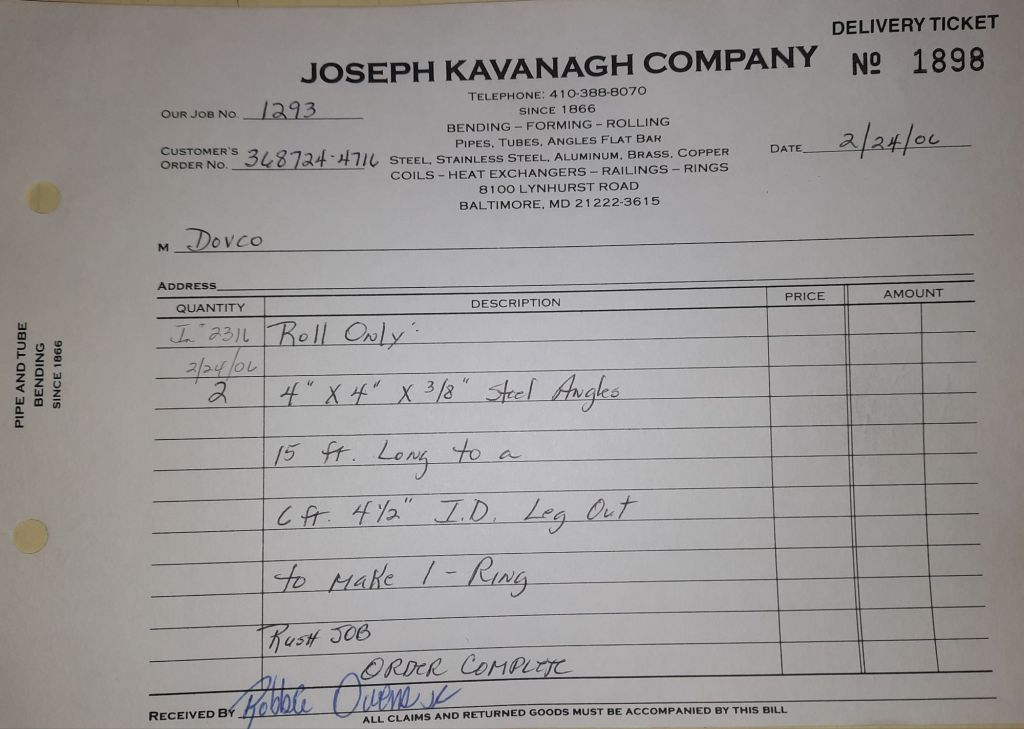 DELIVERY TICKET
JOSEPH KAVANAGH COMPANY
Nº 1898
TELEPHONE: 410-388-8070
SINCE 1866
OUR JOB NO. 1293
BENDING – FORMING – ROLLING
PIPES, TUBES, ANGLES FLAT BAR
CUSTOMER'S
ORDER NO. 368724-4716
STEEL, STAINLESS STEEL, ALUMINUM, BRASS, COPPER
DATE 2/24/06
COILS – HEAT EXCHANGERS – RAILINGS – RINGS
8100 LYNHURST ROAD
BALTIMORE, MD 21222-3615
M Dovco
ADDRESS
QUANTITY DESCRIPTION PRICE AMOUNT
Roll Only:
2/24/06
2 4" X 4" X 3/8" Steel Angles
15 ft. Long to a
6 ft. 4 1/2" I.D. Leg Out
to Make 1 - Ring
Rush JOB
ORDER COMPLETE
RECEIVED BY Robbie
ALL CLAIMS AND RETURNED GOODS MUST BE ACCOMPANIED BY THIS BILL
PIPE AND TUBE
BENDING
SINCE 1866